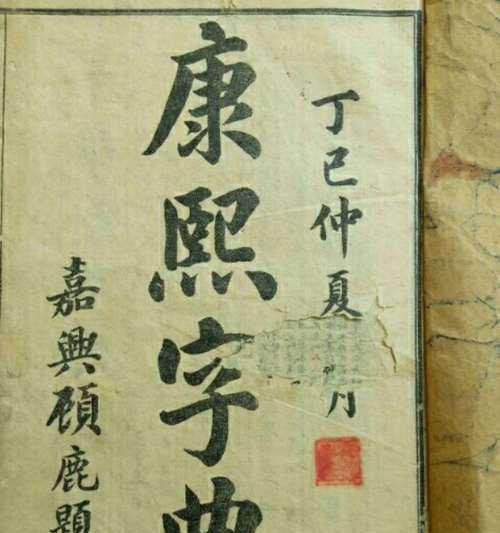 丁巳仲夏月
康熙字典
嘉興顧鹿題